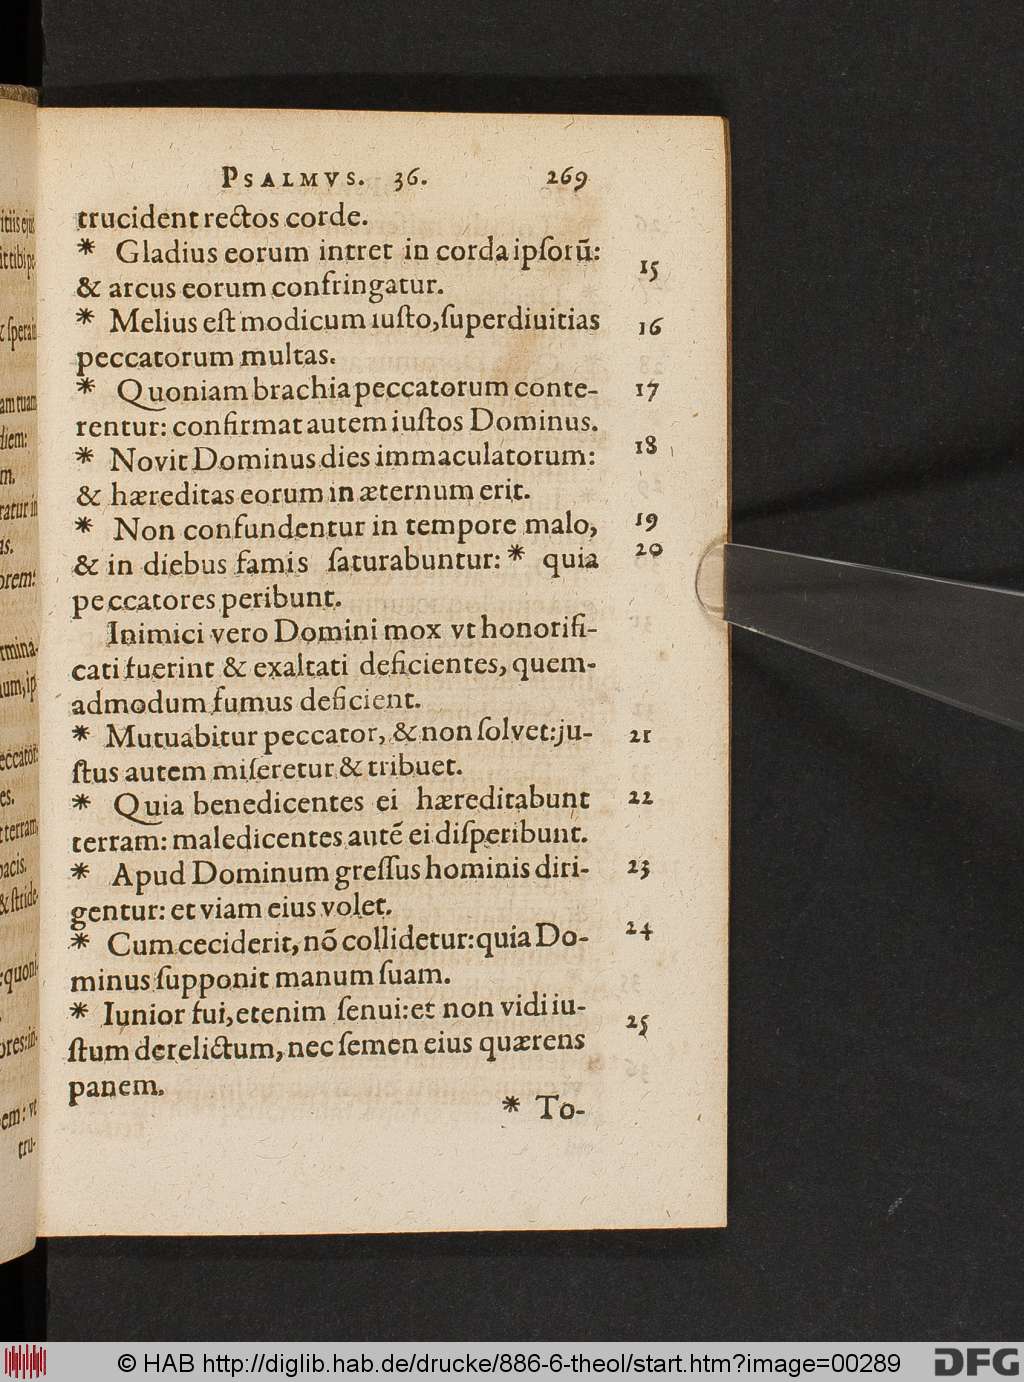 PSALMVS. 36. 269
trucident rectos corde.
* Gladius eorum intret in corda ipſorū: 15
& arcus eorum confringatur.
* Melius eſt modicum iuſto, ſuper diuitias 16
peccatorum multas.
* Quoniam brachia peccatorum conte- 17
rentur: confirmat autem iuſtos Dominus.
* Novit Dominus dies immaculatorum: 18
& hæreditas eorum in æternum erit.
* Non confundentur in tempore malo, 19
& in diebus famis ſaturabuntur: * quia 20
peccatores peribunt.
Inimici vero Domini mox vt honorifi-
cati fuerint & exaltati deficientes, quem-
admodum fumus deficient.
* Mutuabitur peccator, & non ſolvet: ju- 21
ſtus autem miſeretur & tribuet.
* Quia benedicentes ei hæreditabunt 22
terram: maledicentes autē ei diſperibunt.
* Apud Dominum greſſus hominis diri- 23
gentur: et viam eius volet.
* Cum ceciderit, nō collidetur: quia Do- 24
minus ſupponit manum ſuam.
* Iunior fui, etenim ſenui: et non vidi iu- 25
ſtum derelictum, nec ſemen eius quærens
panem.
* To-
© HAB http://diglib.hab.de/drucke/886-6-theol/start.htm?image=00289 DFG